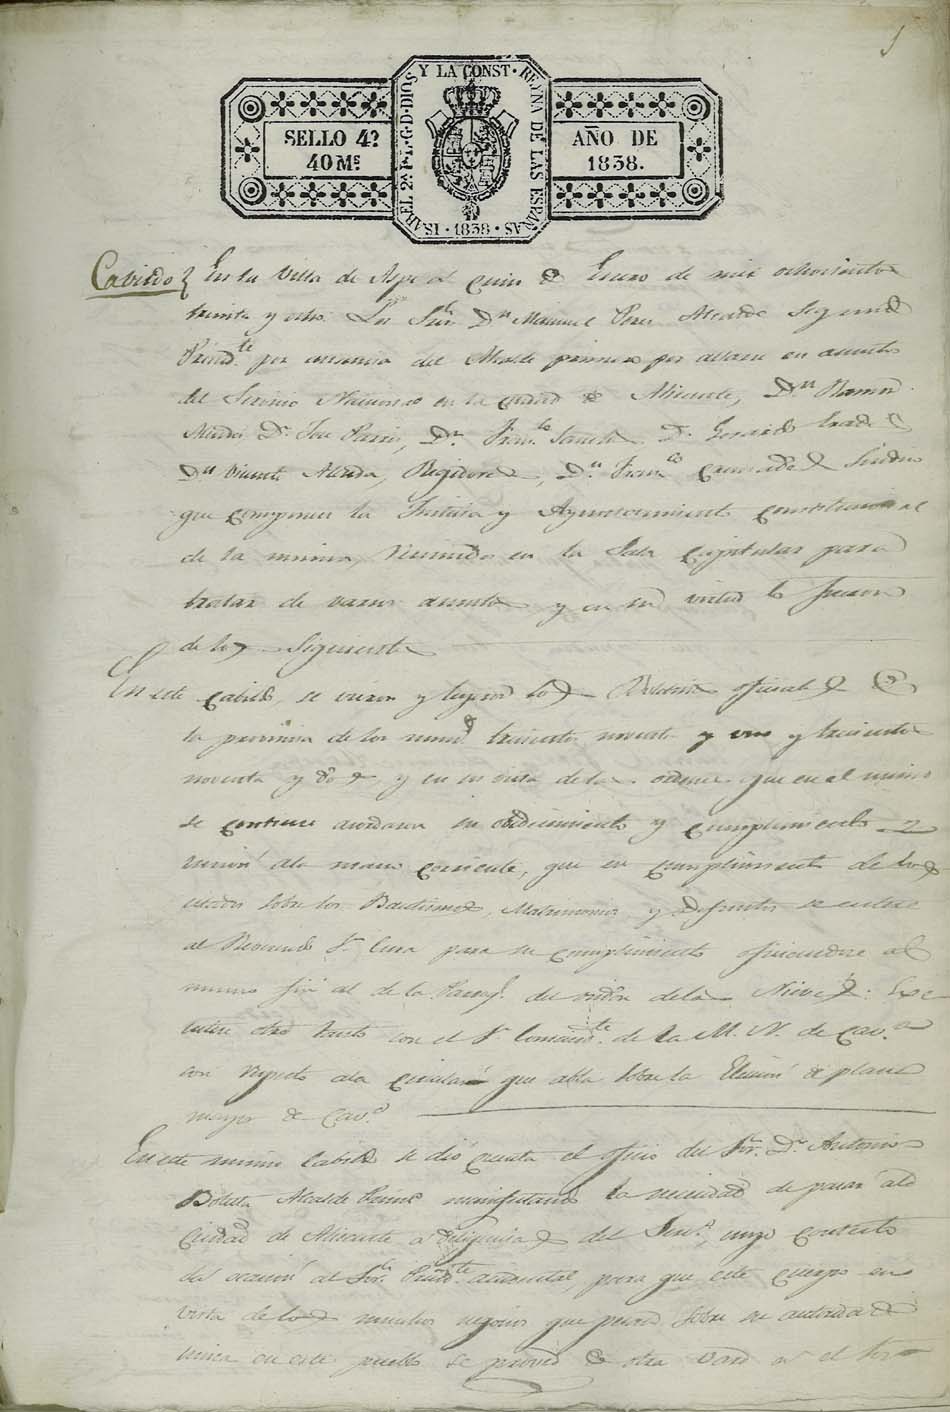 1
ISABEL 2ª P. L. G. D. DIOS Y LA CONST. REYNA DE LAS ESPAÑAS
SELLO 4º
40 Ms.
AÑO DE
1838.
1838
Cavildo En la Villa de Aspe a de Enero de mil ochocientos
treinta y ocho: Los Sres. Dn Manuel Perez Alcalde Segundo
Presidte por ausencia del Alcalde primero por allarse en asuntos
del Servicio Nacional en la ciudad de Alicante, Dn Ramon
Dn Jose Dn Franco Sanchez Dn Gerardo
Dn Vicente Regidores, Dn Franco Sindico
que componen la Justicia y Ayuntamiento Constitucional
de la misma, reunidos en la Sala Capitular para
tratar de varios asuntos y en su virtud lo fueron
de los Siguientes
En este Cabildo se vieron y leyeron los Boletines oficiales de
la provincia de los nums trescientos noventa y uno y trescientos
noventa y dos, y en su vista de las ordenes que en el mismo
se contiene acordaron su obedecimiento y cumplimiento y
union al mano corriente, que en cumplimiento de los
estados sobre los Bautismos, Matrimonios y Difuntos se entere
al Reverendo Sr Cura para su cumplimiento oficiandose al
mismo fin al de la Parroqa de las Nieves:
entere otro tanto con el Sr Comandte de la M. N. de Cava
con respeto a la circular que abla sobre la Elecion de plana
mayor de Cava
En este mismo Cabildo se dió cuenta el oficio del Sor. Dn Antonio
Botella Alcalde Primo manifestando la necesidad de pasar a la
Ciudad de Alicante a diligencias del Serv, cuyo contesto
da ocasion al Sor. Presidte accidental, para que este cuerpo en
vista de los muchos negocios que pesan sobre su autoridad
unica en este pueblo se de otra